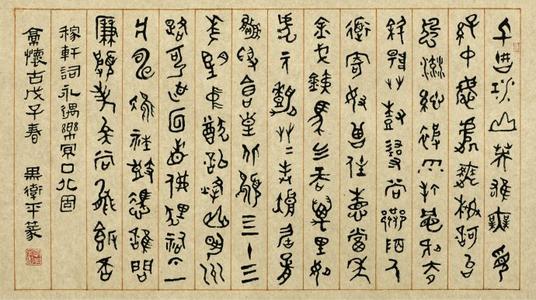 千古江山英雄無覓
孫仲謀處舞榭歌臺
風流總被雨打風吹去
斜陽艸樹尋常巷陌人
道寄奴曾住想當年
金戈鐵馬气吞萬里如
虎元嘉艸艸封狼居胥
贏得倉皇北顧三十三
年望中猶記烽火揚州
路可堪回首佛狸祠下一
片神鴉社鼓憑誰問
廉頗老矣尚能飯否
稼軒詞永遇樂京口北固
亭懷古戊子春 黑衛平篆